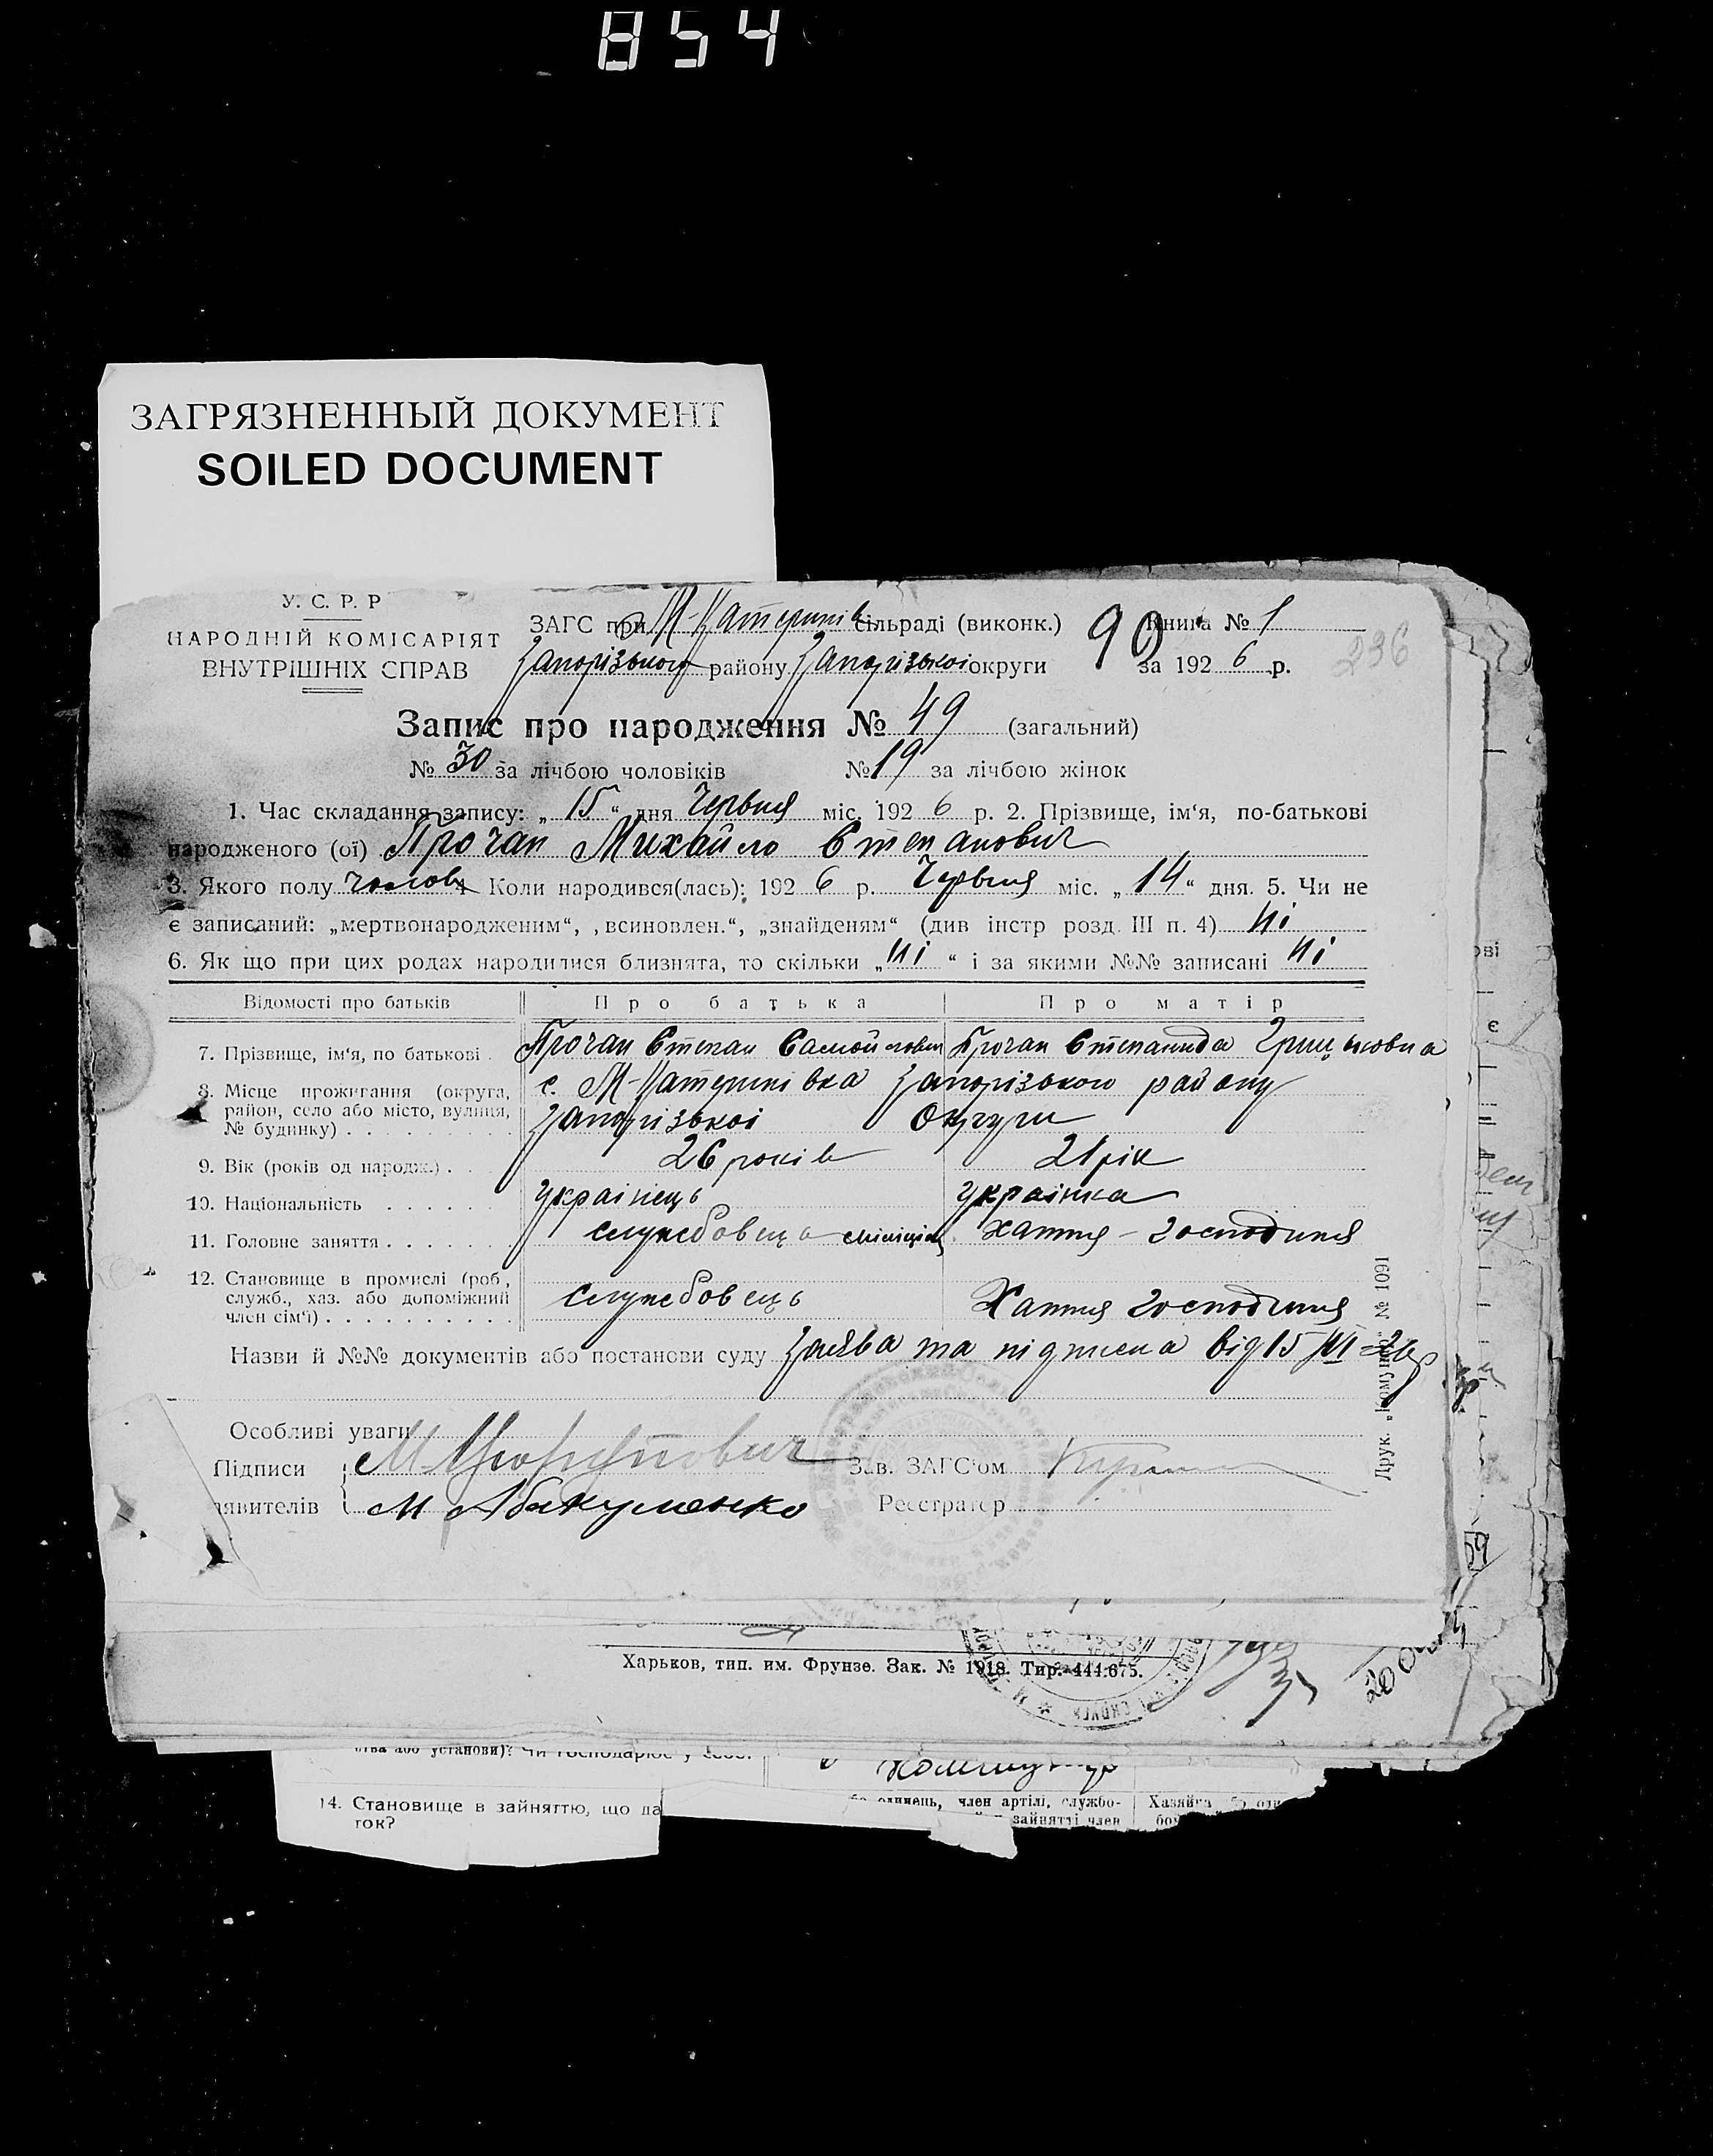 854
ЗАГРЯЗНЕННЫЙ ДОКУМЕНТ
SOILED DOCUMENT
У. С. Р. Р
НАРОДНІЙ КОМІСАРІЯТ
ВНУТРІШНІХ СПРАВ
ЗАГС при М-Катеринів сільраді (виконк.) 90 Книга № 1
Запорізького району Запорізькоі округи за 1926 р. 236
Запис про народження № 49 (загальний)
№ 30 за лічбою чоловіків № 19 за лічбою жінок
1. Час складання запису: „15“ дня Червня міс. 1926 р. 2. Прізвище, ім‘я, по-батькові
народженого (ої) Прочан Михайло Степанович
3. Якого полу чолов 4 Коли народився(лась): 1926 р. Червня міс. „14“ дня. 5. Чи не
є записаний: „мертвонародженим“, „всиновлен.“, „знайденям“ (див інстр розд. III п. 4) ні
6. Як що при цих родах народилися близнята, то скільки „ні“ і за якими №№ записані ні
Відомості про батьків Про батька Про матір
7. Прізвище, ім‘я, по батькові. Прочан Степан Самойлович Прочан Степанида Грицьковна
8. Місце прожигання (округа, район, село або місто, вулиця, № будинку) с. М-Катеринівка Запорізького району
Запорізькоі Округи
9. Вік (років од народж.) 26 років 21 рік
10. Національність українець українка
11. Головне заняття службовець міліціі хатня - господиня
12. Становище в промислі (роб, служб., хаз. або допоміжний член сім‘ї) службовець Хатня господиня
Назви й №№ документів або постанови суду Заява та підписка від 15/VI-26р
Особливі уваги
Підписи
Зав. ЗАГС‘ом
явителів М Абакуменко Реєстратор
Друк. „Комунар“ № 1091
Харьков, тип. им. Фрунзе. Зак. № 1918. Тир. 444.675.
14. Становище в зайняттю, що да
ток?
член артілі, службо-
зайнятті член
Хазяйка